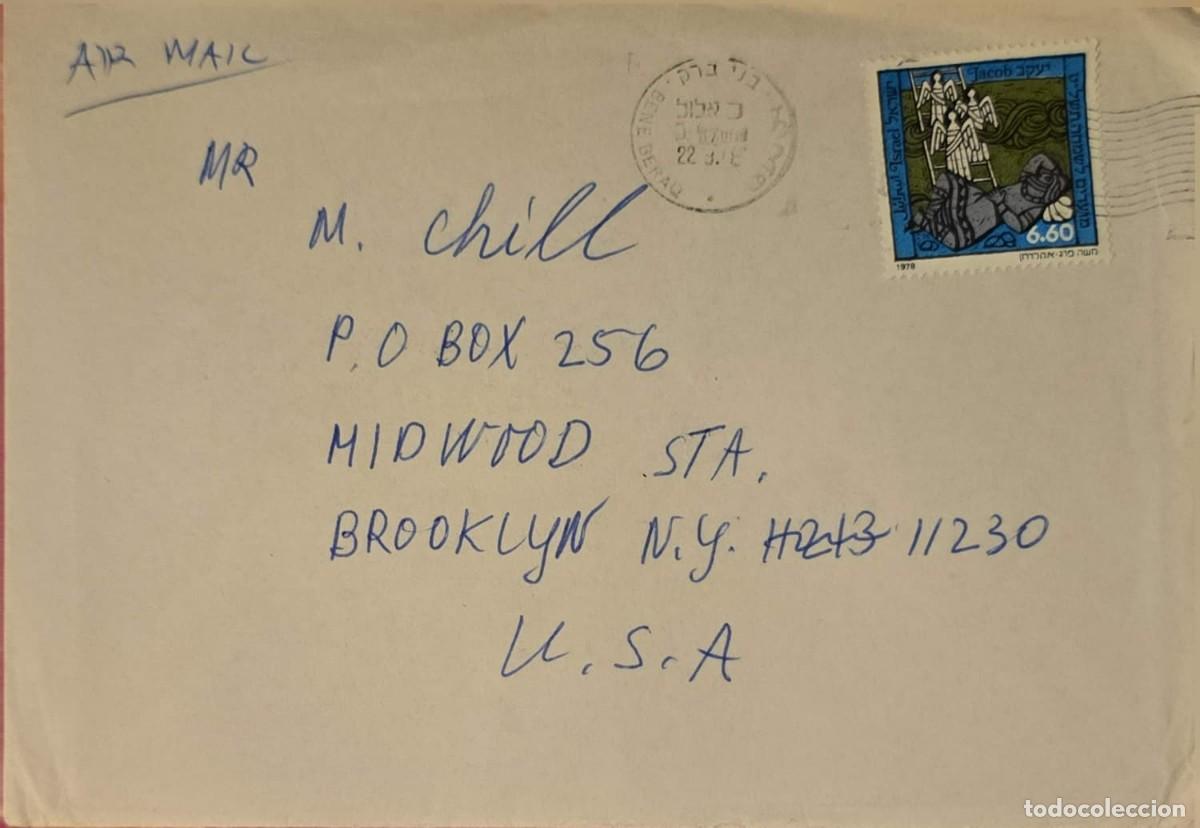 AIR MAIL
MR
M. Chill
P.O BOX 256
MIDWOOD STA.
BROOKLYN N.Y. 11213 11230
U.S.A
בני ברק
BENE BERAQ
כ אלול
22
יעקב Jacob
ישראל Israel
מועדים לשמחה תשל"ט
6.60
1978
todocoleccion